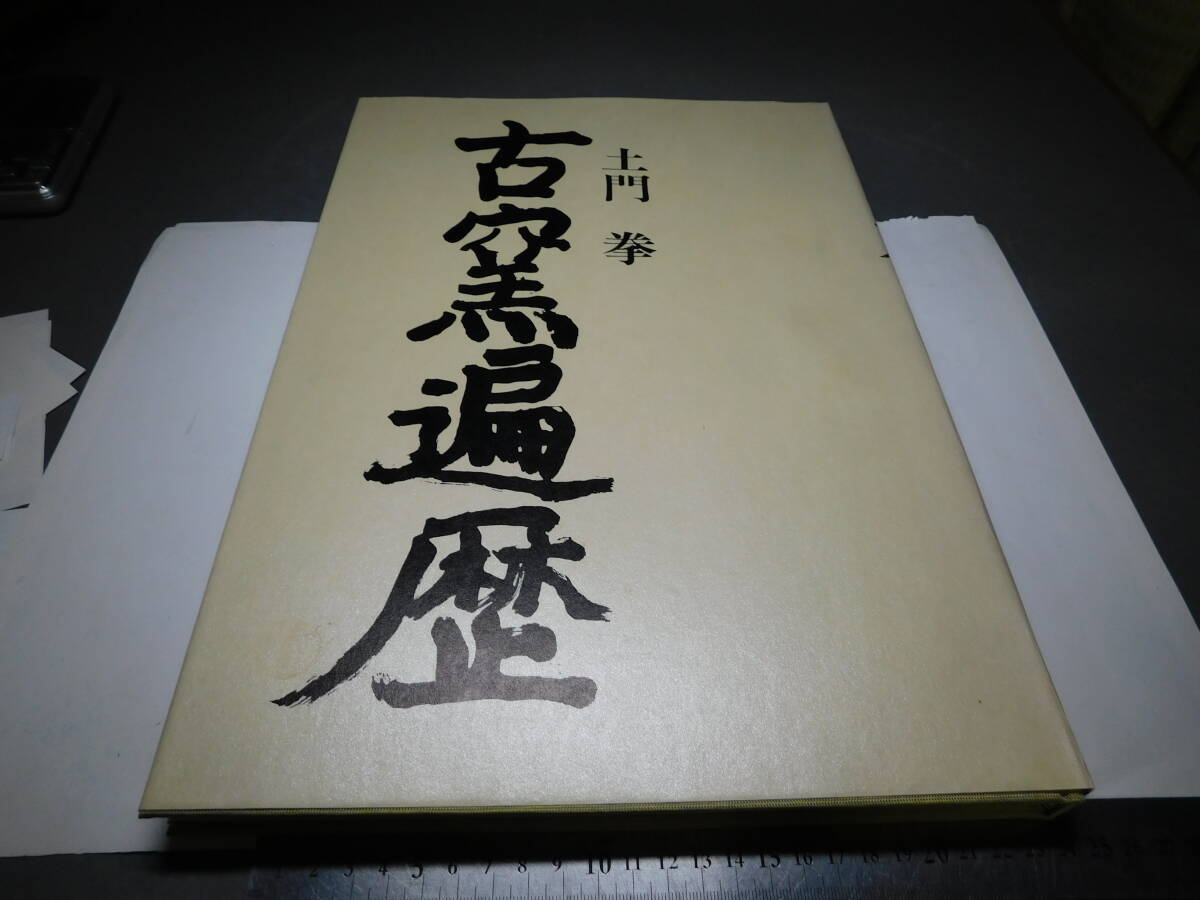 土門 拳
古窯遍歴
2 3 4 5 6 7 8 9 10 11 12 13 14 15 16 17 18 19 20 21 22 23 24 25 26 27